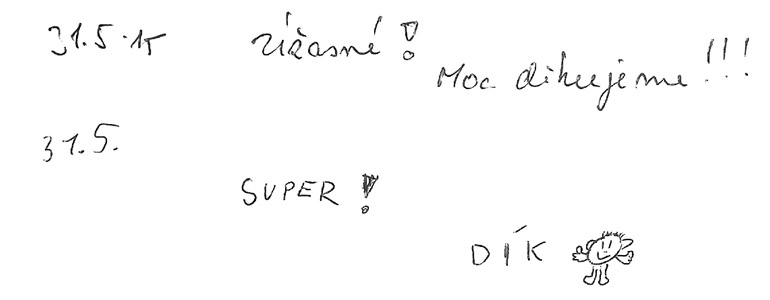 31.5.15 Úžasné!
Moc děkujeme!!!
31.5.
SUPER!
DÍK